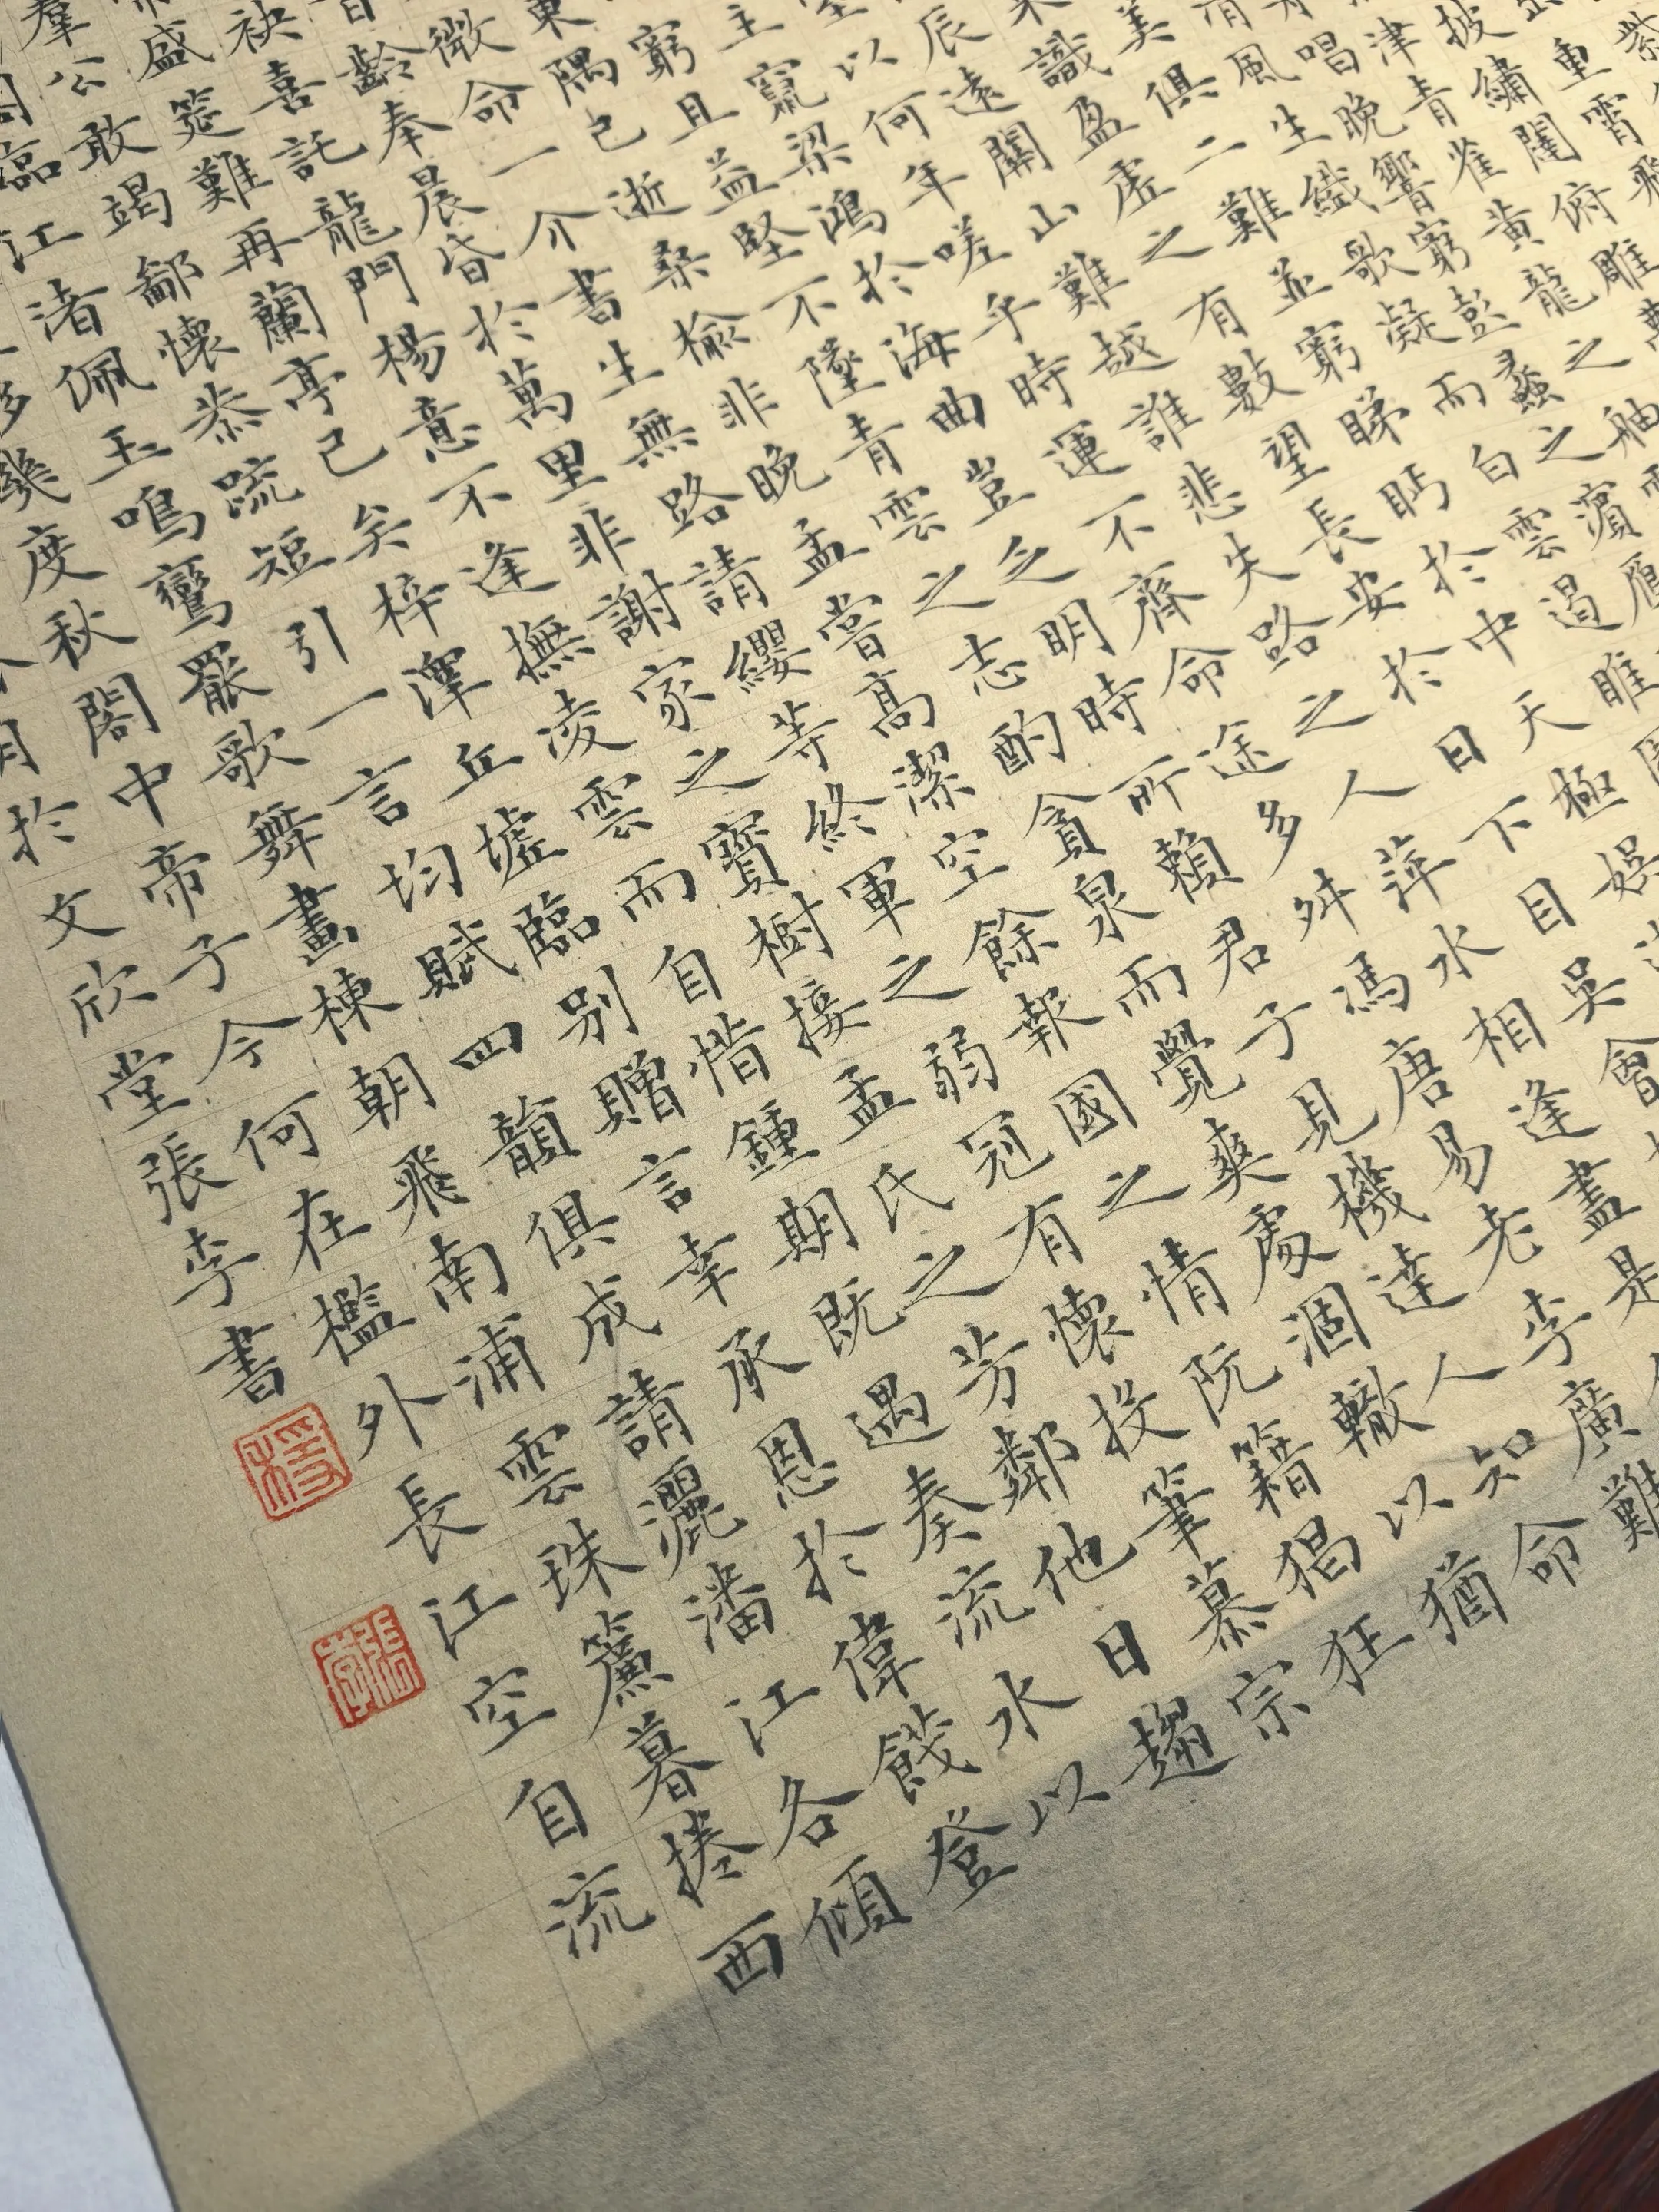 紫
重霄飛
披繡闥俯雕
津青雀黃龍之舳
唱晚響窮彭蠡之濱鴈
風生纖歌凝而白雲遏睢
美俱二難並窮睇眄於中天極娛
識盈虛之有數望長安於日下目吳會
辰遠關山難越誰悲失路之人萍水相逢盡是
以何年嗟乎時運不齊命途多舛馮唐易老李廣難
主竄梁鴻於海曲豈乏明時所賴君子見機達人知命
窮且益堅不墜青雲之志酌貪泉而覺爽處涸轍以猶
東隅已逝桑榆非晚孟嘗高潔空餘報國之情阮籍猖狂
微命一介書生無路請纓等終軍之弱冠有懷投筆慕宗
齡奉晨昏於萬里非謝家之寶樹接孟氏之芳鄰他日趨
袂喜託龍門楊意不逢撫凌雲而自惜鍾期既遇奏流水以
盛筵難再蘭亭已矣梓澤丘墟臨別贈言幸承恩於偉餞登
羣公敢竭鄙懷恭疏短引一言均賦四韻俱成請灑潘江各傾
閣臨江渚佩玉鳴鸞罷歌舞畫棟朝飛南浦雲珠簾暮捲西
幾度秋閣中帝子今何在檻外長江空自流
月於文欣堂張李書